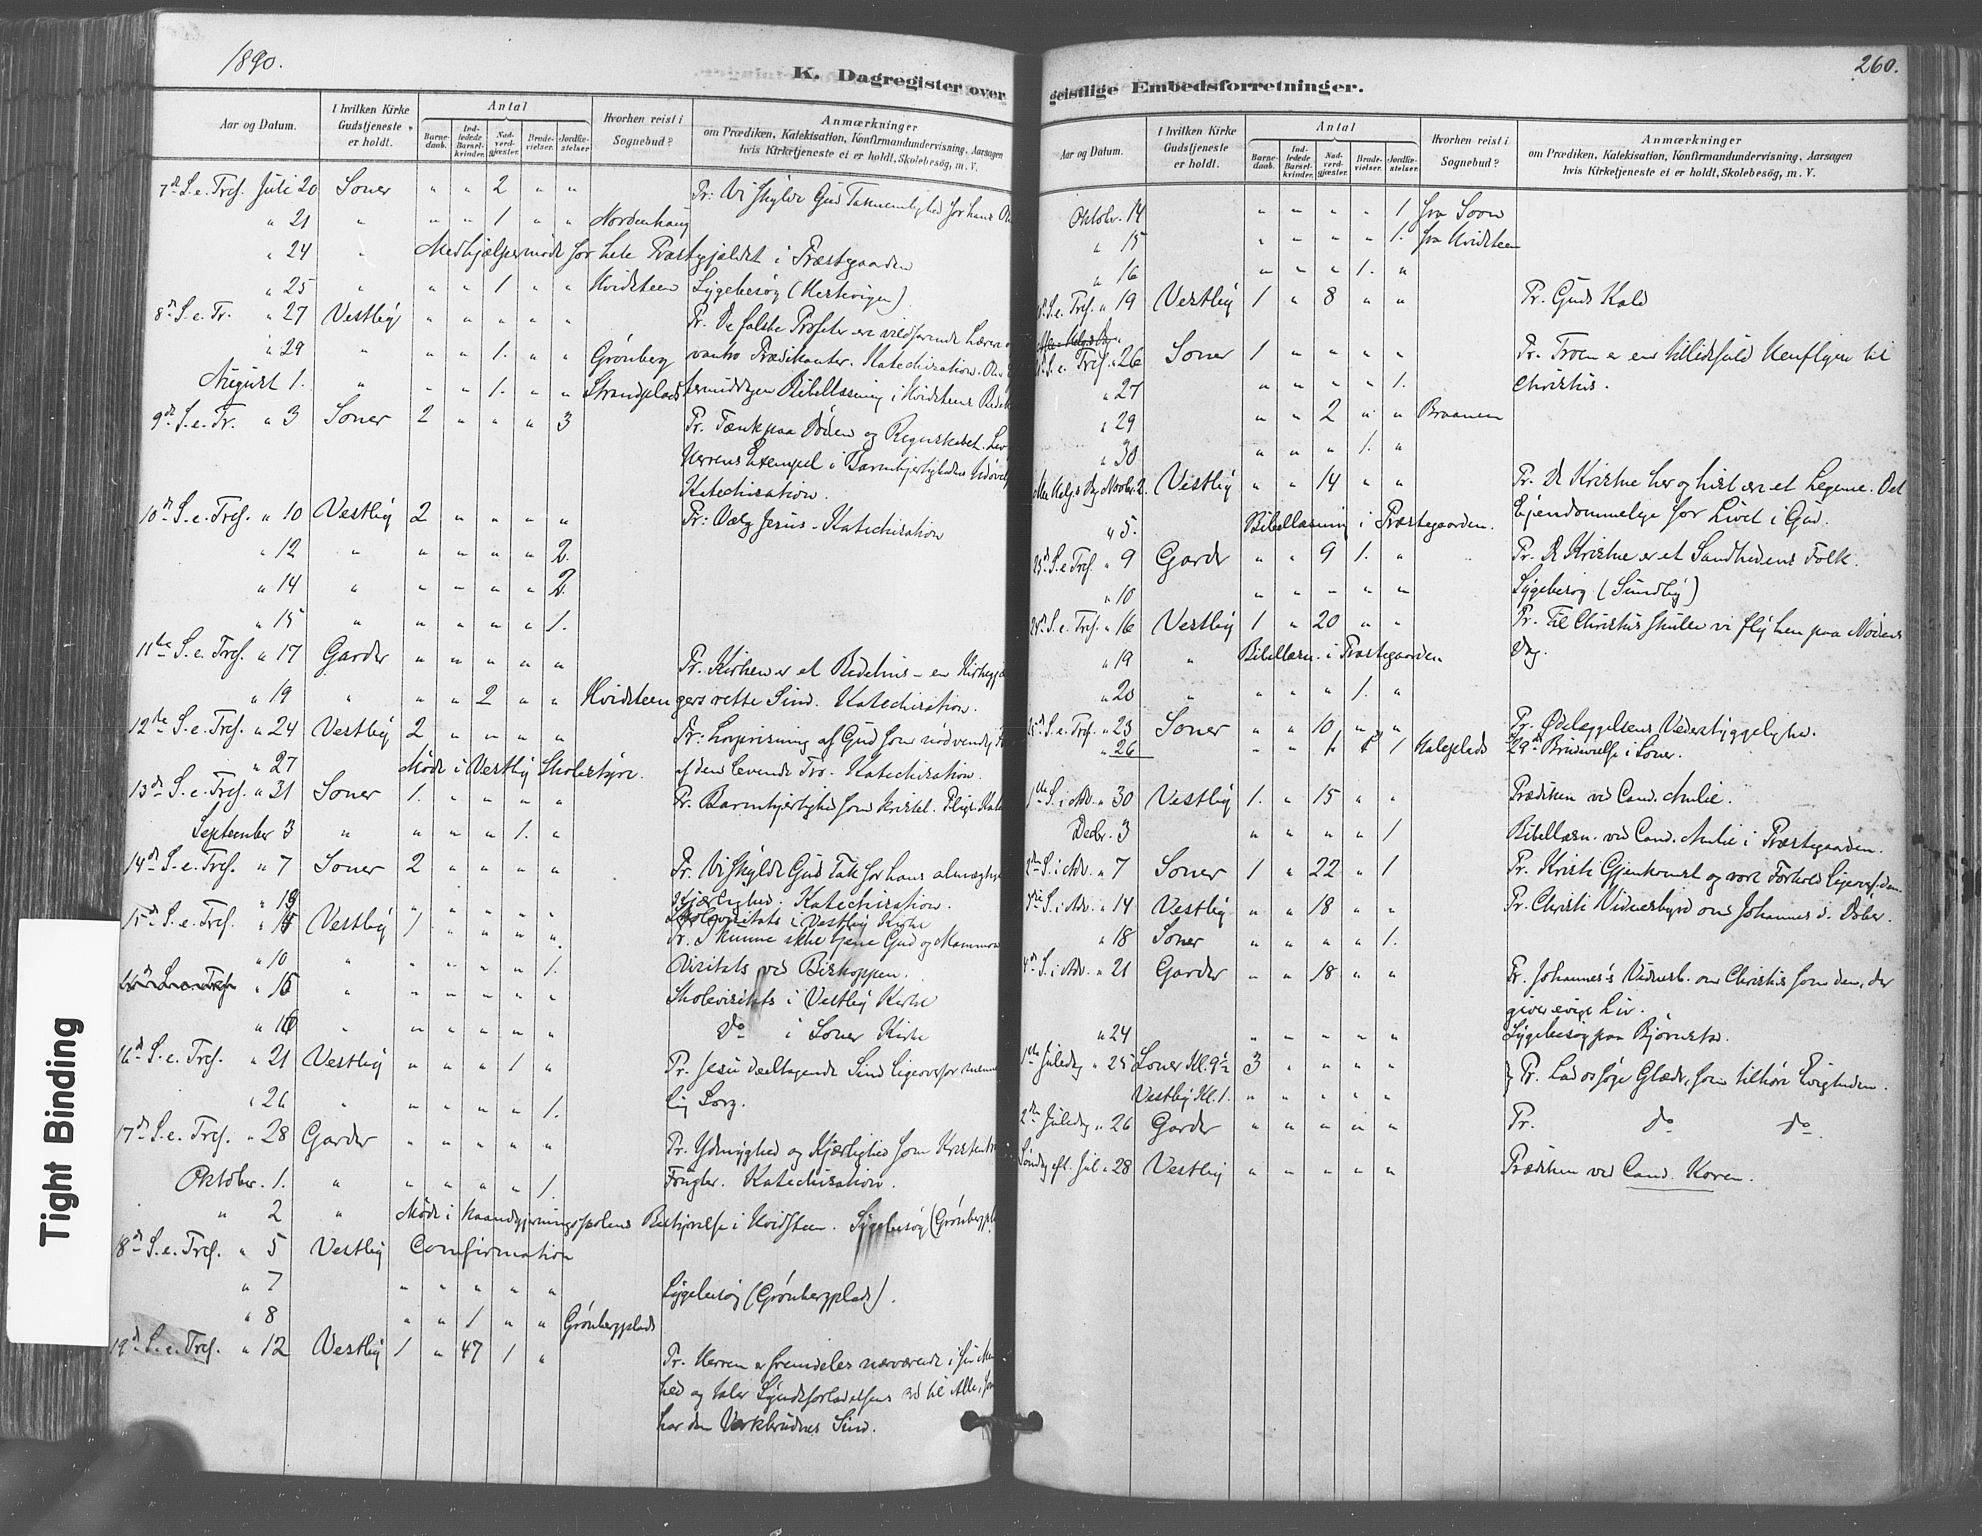 1890.
K. Dagregister over
Aar og Datum.
I hvilken Kirke Gudstjeneste er holdt.
Antal
Barne-daab.
Ind-ledede Barsel-kvinder.
Nad-verd-gjæster.
Brude-vielser.
Jordfæ-stelser
Hvorhen reist i Sognebud?
Anmærkninger
om Prædiken, Katekisation, Konfirmandundervisning, Aarsagen
hvis Kirketjeneste ei er holdt, Skolebesøg, m. V.
7de S. e. Tref. Juli 20 Soner " " 2 " " Pr: Vi skylde Gud Taknemlighed for hans
" 21 " " " 1 " " Nordenhaug
" 24 " Medhjælpermøde for hele Præstegjældet i Præstegaarden
" 25 " " " 1 " " Hvidsteen Sygebesøg
8de S. e. Tr. " 27 Vestby " " " " " Pr. De falske Profeter ere vildfarende Lærere
" 29 " " " 1. " " Grønberg vantro Prædikanter. Katechisation.
August 1. " " " 1. " " Strandplads termiddagen Bibellæsning i Hvidsteens
9de S. e. Tr. " 3 Soner 2 " " " 3 Pr. Tænk paa Døden og Regnskabet.
Herrens Exempel i Barmhjertigheds
Katechisation.
10de S. e. Tref. " 10 Vestby 2 " " " " Pr: Vælg Jesus. Katechisation
" 12 " " " " " 2.
" 14 " " " " " 2.
" 15 " " " " " 1.
11te S. e. Tref. " 17 Garder " " " " " Pr. Kirken er et Bedehus – en
" 19 " " " 2 " " Hvidsteen gers rette Sind. Katechisation.
12te S. e. Tref. " 24 Vestby 2 " " " " Pr: af Gud som nødvendig
" 27 Møde i Vestby Skolestyre. af den levende Tro. Katechisation.
13de S. e. Tref. " 31 Soner 1. " " " " Pr. Barmhjertighed som kristel. Pligt.
September 3 " " " " 1. "
14de S. e. Tref. " 7 Soner 2 " " " " Pr. Vi skylde Gud Tak for hans almægtige
Kjærlighed. Katechisation.
Skolevisitats i Vestby Kirke
15de S. e. Tref. " Vestby 1 " " " " Pr. I kunne ikke tjene Gud og Mammon
" 10 " " " " " 1. Visitats ved Biskoppen.
" 15 " " " " " " Skolevisitats i Vestby Kirke
" 16 " " " " " " Do i Soner Kirke
16de S. e. Tref. " 21 Vestby " " " 1 " Pr. Jesu deeltagende Sind ligeoverfor
" 26 " " " " " 1. lig Sorg.
17de S. e. Tref. " 28 Garder " " " " " Pr. Ydmyghed og Kjærlighed som
Oktober. 1. " " " " " 1. Frugter. Katechisation.
" 2 " Møde i Haandgjerningsskolens Bestyrelse i Hvidsteen. Sygebesøg
18de S. e. Tref. " 5 Vestby Confirmation
" 7 " " " " " Sygebesøg (Grønbergplads).
" 8 " " 1 " " Grønbergplads
19de S. e. Tref. " 12 Vestby 1 " 47 1 " Pr. Herren er fremdeles nærværende i sin
hed og taler Syndsforladelsens Ord til Alle,
har den Værkbrudnes Sind.
260.
geistlige Embedsforretninger.
Aar og Datum.
I hvilken Kirke Gudstjeneste er holdt.
Antal
Barne-daab.
Ind-ledede Barsel-kvinder.
Nad-verd-gjæster.
Brude-vielser.
Jordfæ-stelser.
Hvorhen reist i Sognebud?
Anmærkninger
om Prædiken, Katekisation, Konfirmandundervisning, Aarsagen
hvis Kirketjeneste ei er holdt, Skolebesøg, m. V.
Oktober. 14 " " " " 1 fra Soon
" 15 " " " " 1. fra Hvidsteen
" 16 " " " 1. "
S. e. Tref. " 19 Vestby 1 " 8 " " Pr. Guds Kald
S. e. Tref. " 26 Soner 1 " " " " Pr. Troen er en tillidsfuld Henflyen til
" 27 " " " " 1. Christus.
" 29 " " 2 " " Braanen
" 30 " " " 1. "
Alle Helgs Dag Novbr. 2. Vestby " " 14 " " Pr. De Kristne her og hist ere et Legeme. Det
" 5. Bibellæsning i Præstegaarden. Ejendommelige for Livet i Gud.
23de S. e. Tref. " 9 Garder " " 9 1. " Pr. De Kristne er et Sandhedens Folk.
" 10 " " " " " Sygebesøg (Sundby)
24de S. e. Tref. " 16 Vestby 1 " 20 " " Pr. Til Christus skulle vi fly hen paa Nødens
" 19 " Bibellæsn. i Præstegaarden Dag.
" 20 " " " " 1. "
25de S. e. Tref. " 23 Soner " " 10 " " Pr. Ødelæggelsens Vederstyggelighed.
" 26 " " 1 1 Huleplads 29de Brudevielse i Soner.
1ste S. i Adv. " 30 Vestby 1. " 15 " " Prædiken ved Cand. Aulie.
Decbr. 3 " " " " 1 Bibellæsn. ved Cand. Aulie i Præstegaarden.
2den S. i Adv. " 7 Soner 1 " 22 " 1 Pr. Kristi Gjenkomst og vort Forhold ligeoverf. den.
3die S. i Adv. " 14 Vestby " " 18 " " Pr. Christi Vidnesbyrd om Johannes d. Døber.
" 18 Soner " " " " 1.
4de S. i Adv. " 21 Garder " " 18 " " Pr. Johannes's Vidnesb. om Christus som den, der
giver evige Liv.
" 24 " " " " " Sygebesøg paa Bjørnstad.
1ste Juledag " 25 Soner Kl. 9½ 3 " " " " } Pr. Lad os søge Glæde, som tilhøre Evigheden.
Vestby Kl. 1. " " " " "
2den Juledag " 26 Garder " " " " " Pr. do do.
Søndag eft. Jul " 28 Vestby " " " " " Prædiken ved Cand. Koren.
Tight Binding